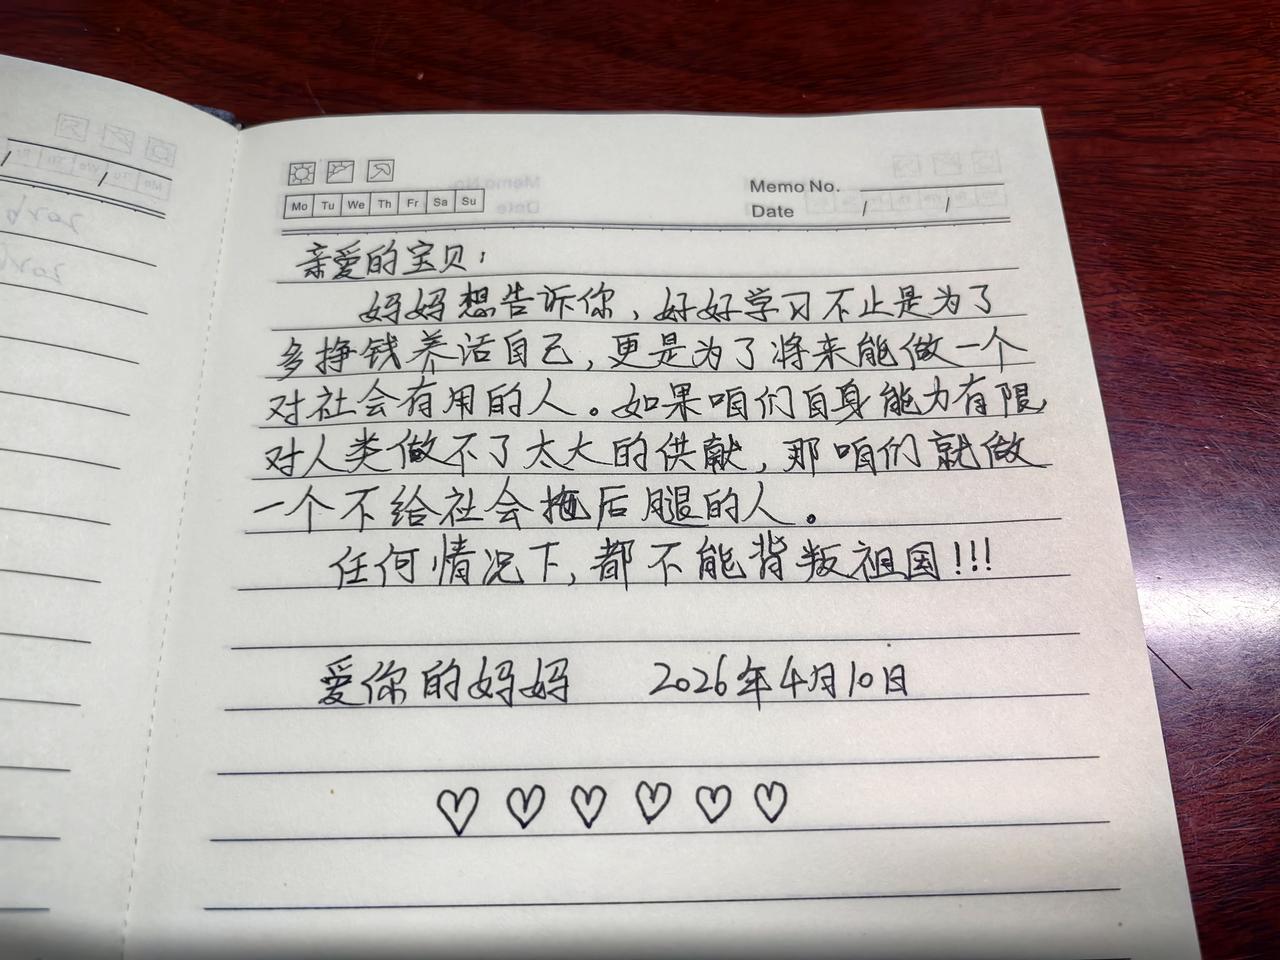 Mo Tu We Th Fr Sa Su
Memo No.
Date / /
亲爱的宝贝：
妈妈想告诉你，好好学习不止是为了
多挣钱养活自己，更是为了将来能做一个
对社会有用的人。如果咱们自身能力有限，
对人类做不了太大的供献，那咱们就做
一个不给社会拖后腿的人。
任何情况下，都不能背叛祖国!!!
爱你的妈妈 2026年4月10日